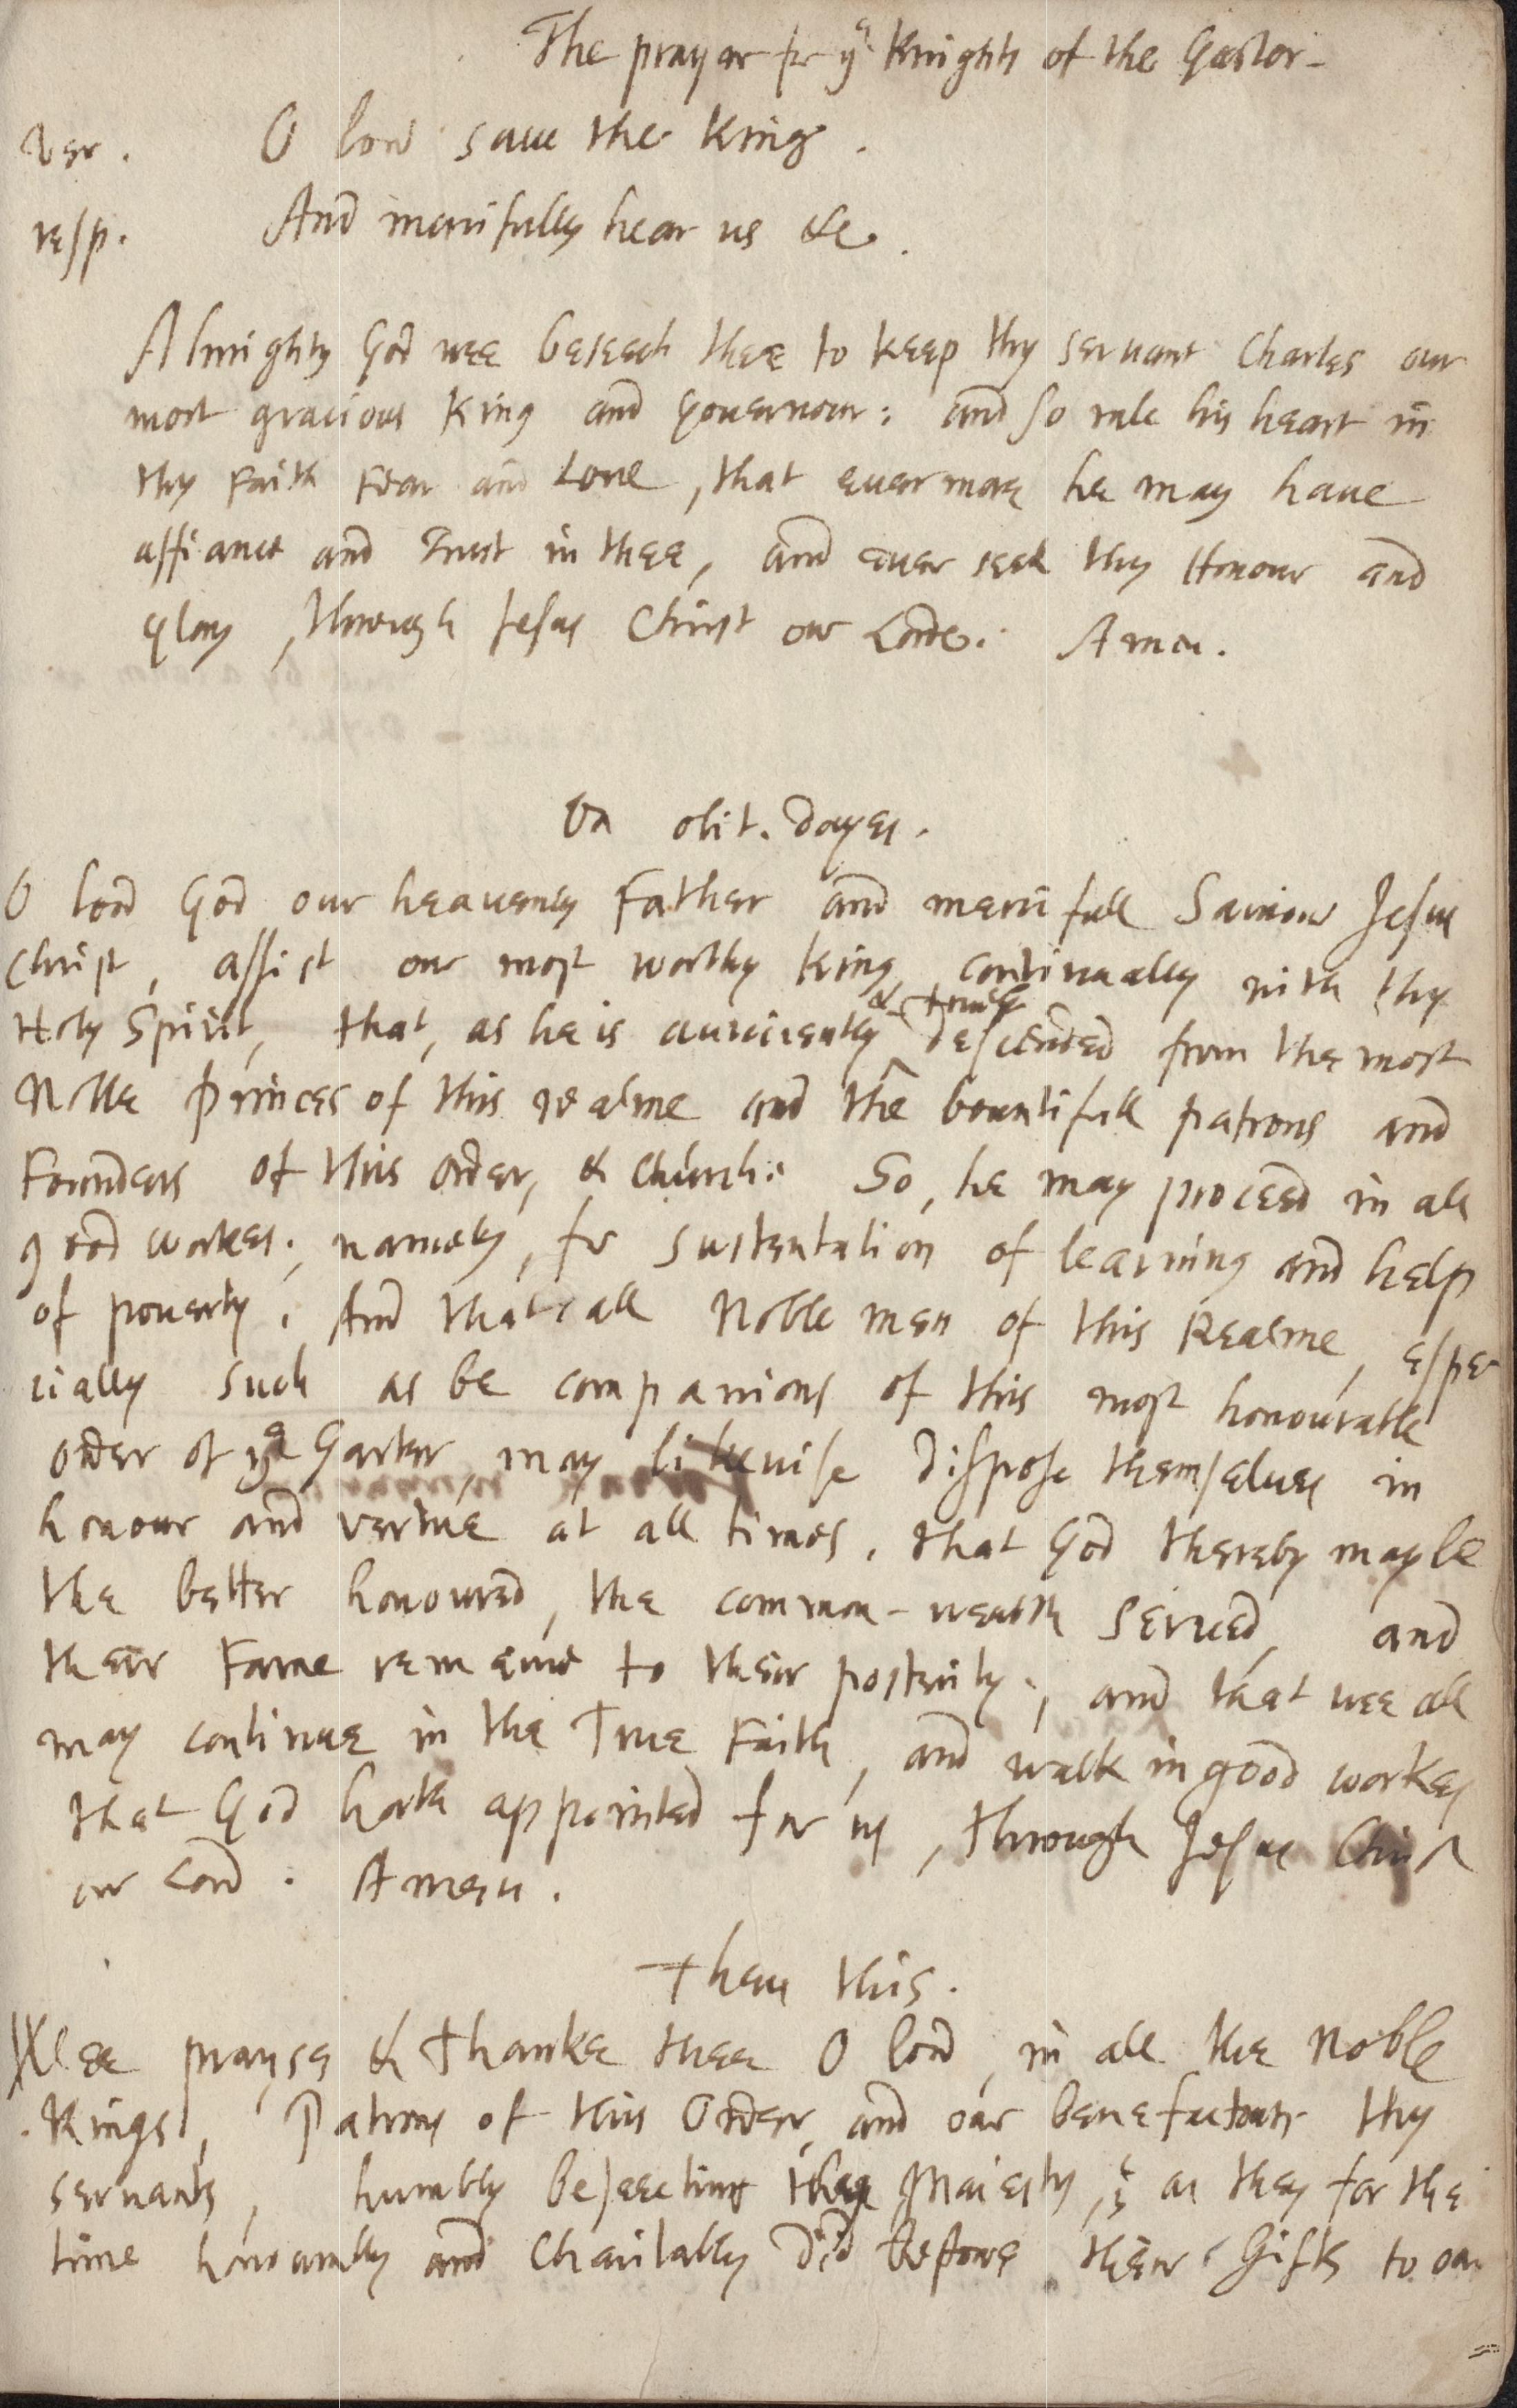 The prayer for yͤ Knights of the Garter -
ver. O lord save the King.
resp. And mercifully hear us &c.
Almighty God wee beseech thee to keep thy servant Charles our
most gracious King and Governour: and so rule his heart in
thy Faith Fear and Love, that evermore he may have
affiance and Trust in thee, and ever seek thy Honour and
glory, through Jesus Christ our Lorde. Amen.
On obit. Dayes.
O lord God our heavenly Father and mercifull Saviour Jesus
Christ, assist our most worthy King, continually with thy
& truly
Holy Spirit, that, as he is aunciently descended from the most
Noble princes of this realme and the bountifull patrons and
Founders of this order, & church: So, he may proceed in all
good workes; namely, for sustentation of learning and help
of poverty. And that all Noble men of this Realme, espe
cially such as be companions of this most honourable
order of yͤ Garter, may likewise dispose themselves in
honour and vertue at all times, that God thereby may be
the better honoured, the common-wealth served, and
their Fame remaine to their posterity, and that wee all
may continue in the True Faith, and walk in good workes
that God hath appointed for us, through Jesus Christ
our Lord. Amen.
Then this.
Wee prayse & thanke thee O lord, in all the Noble
Kings, Patrons of this Order, and our benefactours thy
servants, humbly beseeching thy Maiesty, yͭ as they for the
time honourably and charitably did bestowe their Gifts to our